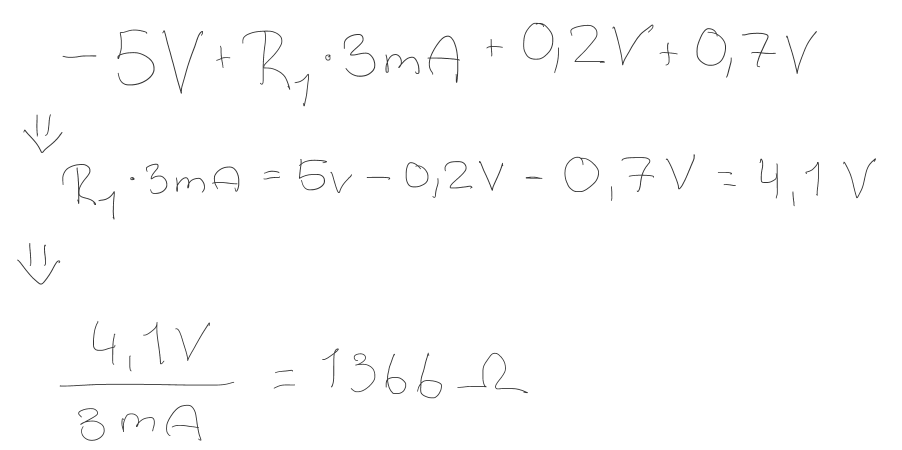 -5V + R₁·3mA + 0,2V + 0,7V
⇓
R₁·3mA = 5V - 0,2V - 0,7V = 4,1V
⇓
4,1V
3mA
= 1366 Ω